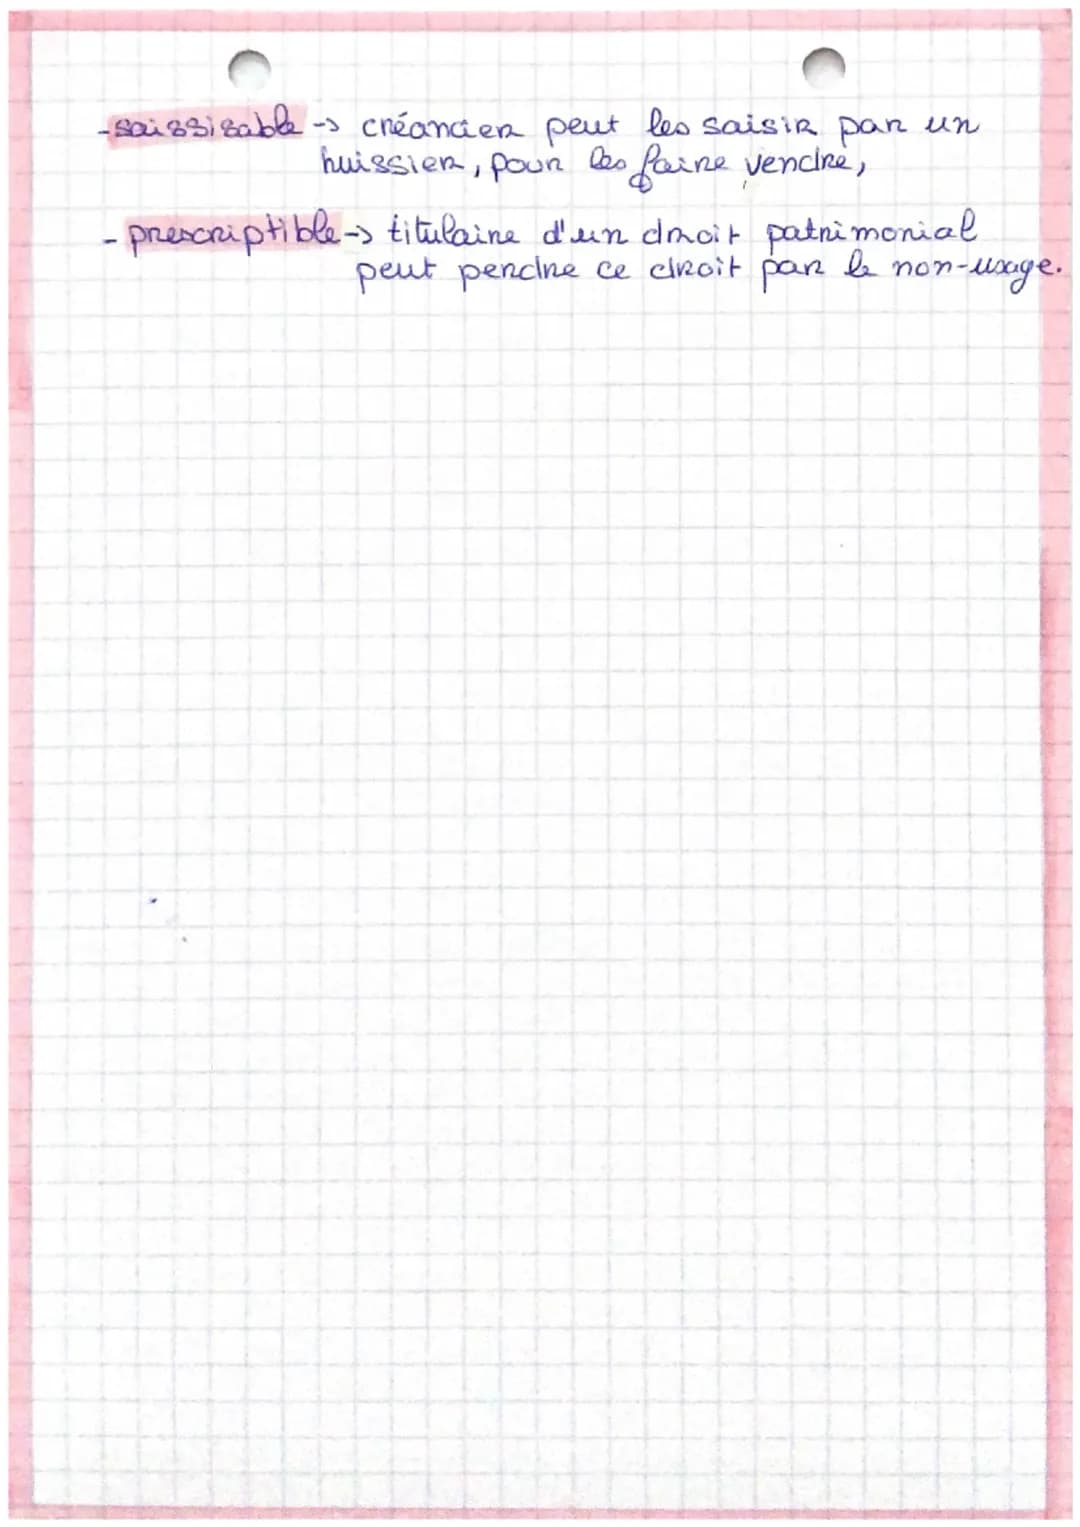 - saissisable -> créancier peut les saisir par un
huissier, pour les faire vendre,
- prescriptible -> titulaire d'un droit patrimonial
peut perdre ce droit par le non-usage.